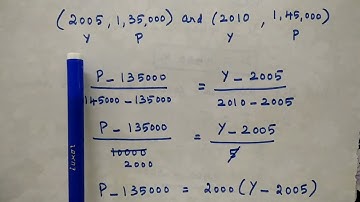 (2005, 1,35,000) and (2010, 1,45,000)
Y P Y P
P - 135000 / 145000 - 135000 = Y - 2005 / 2010 - 2005
P - 135000 / 10000 2000 = Y - 2005 / 5
P - 135000 = 2000 (Y - 2005)